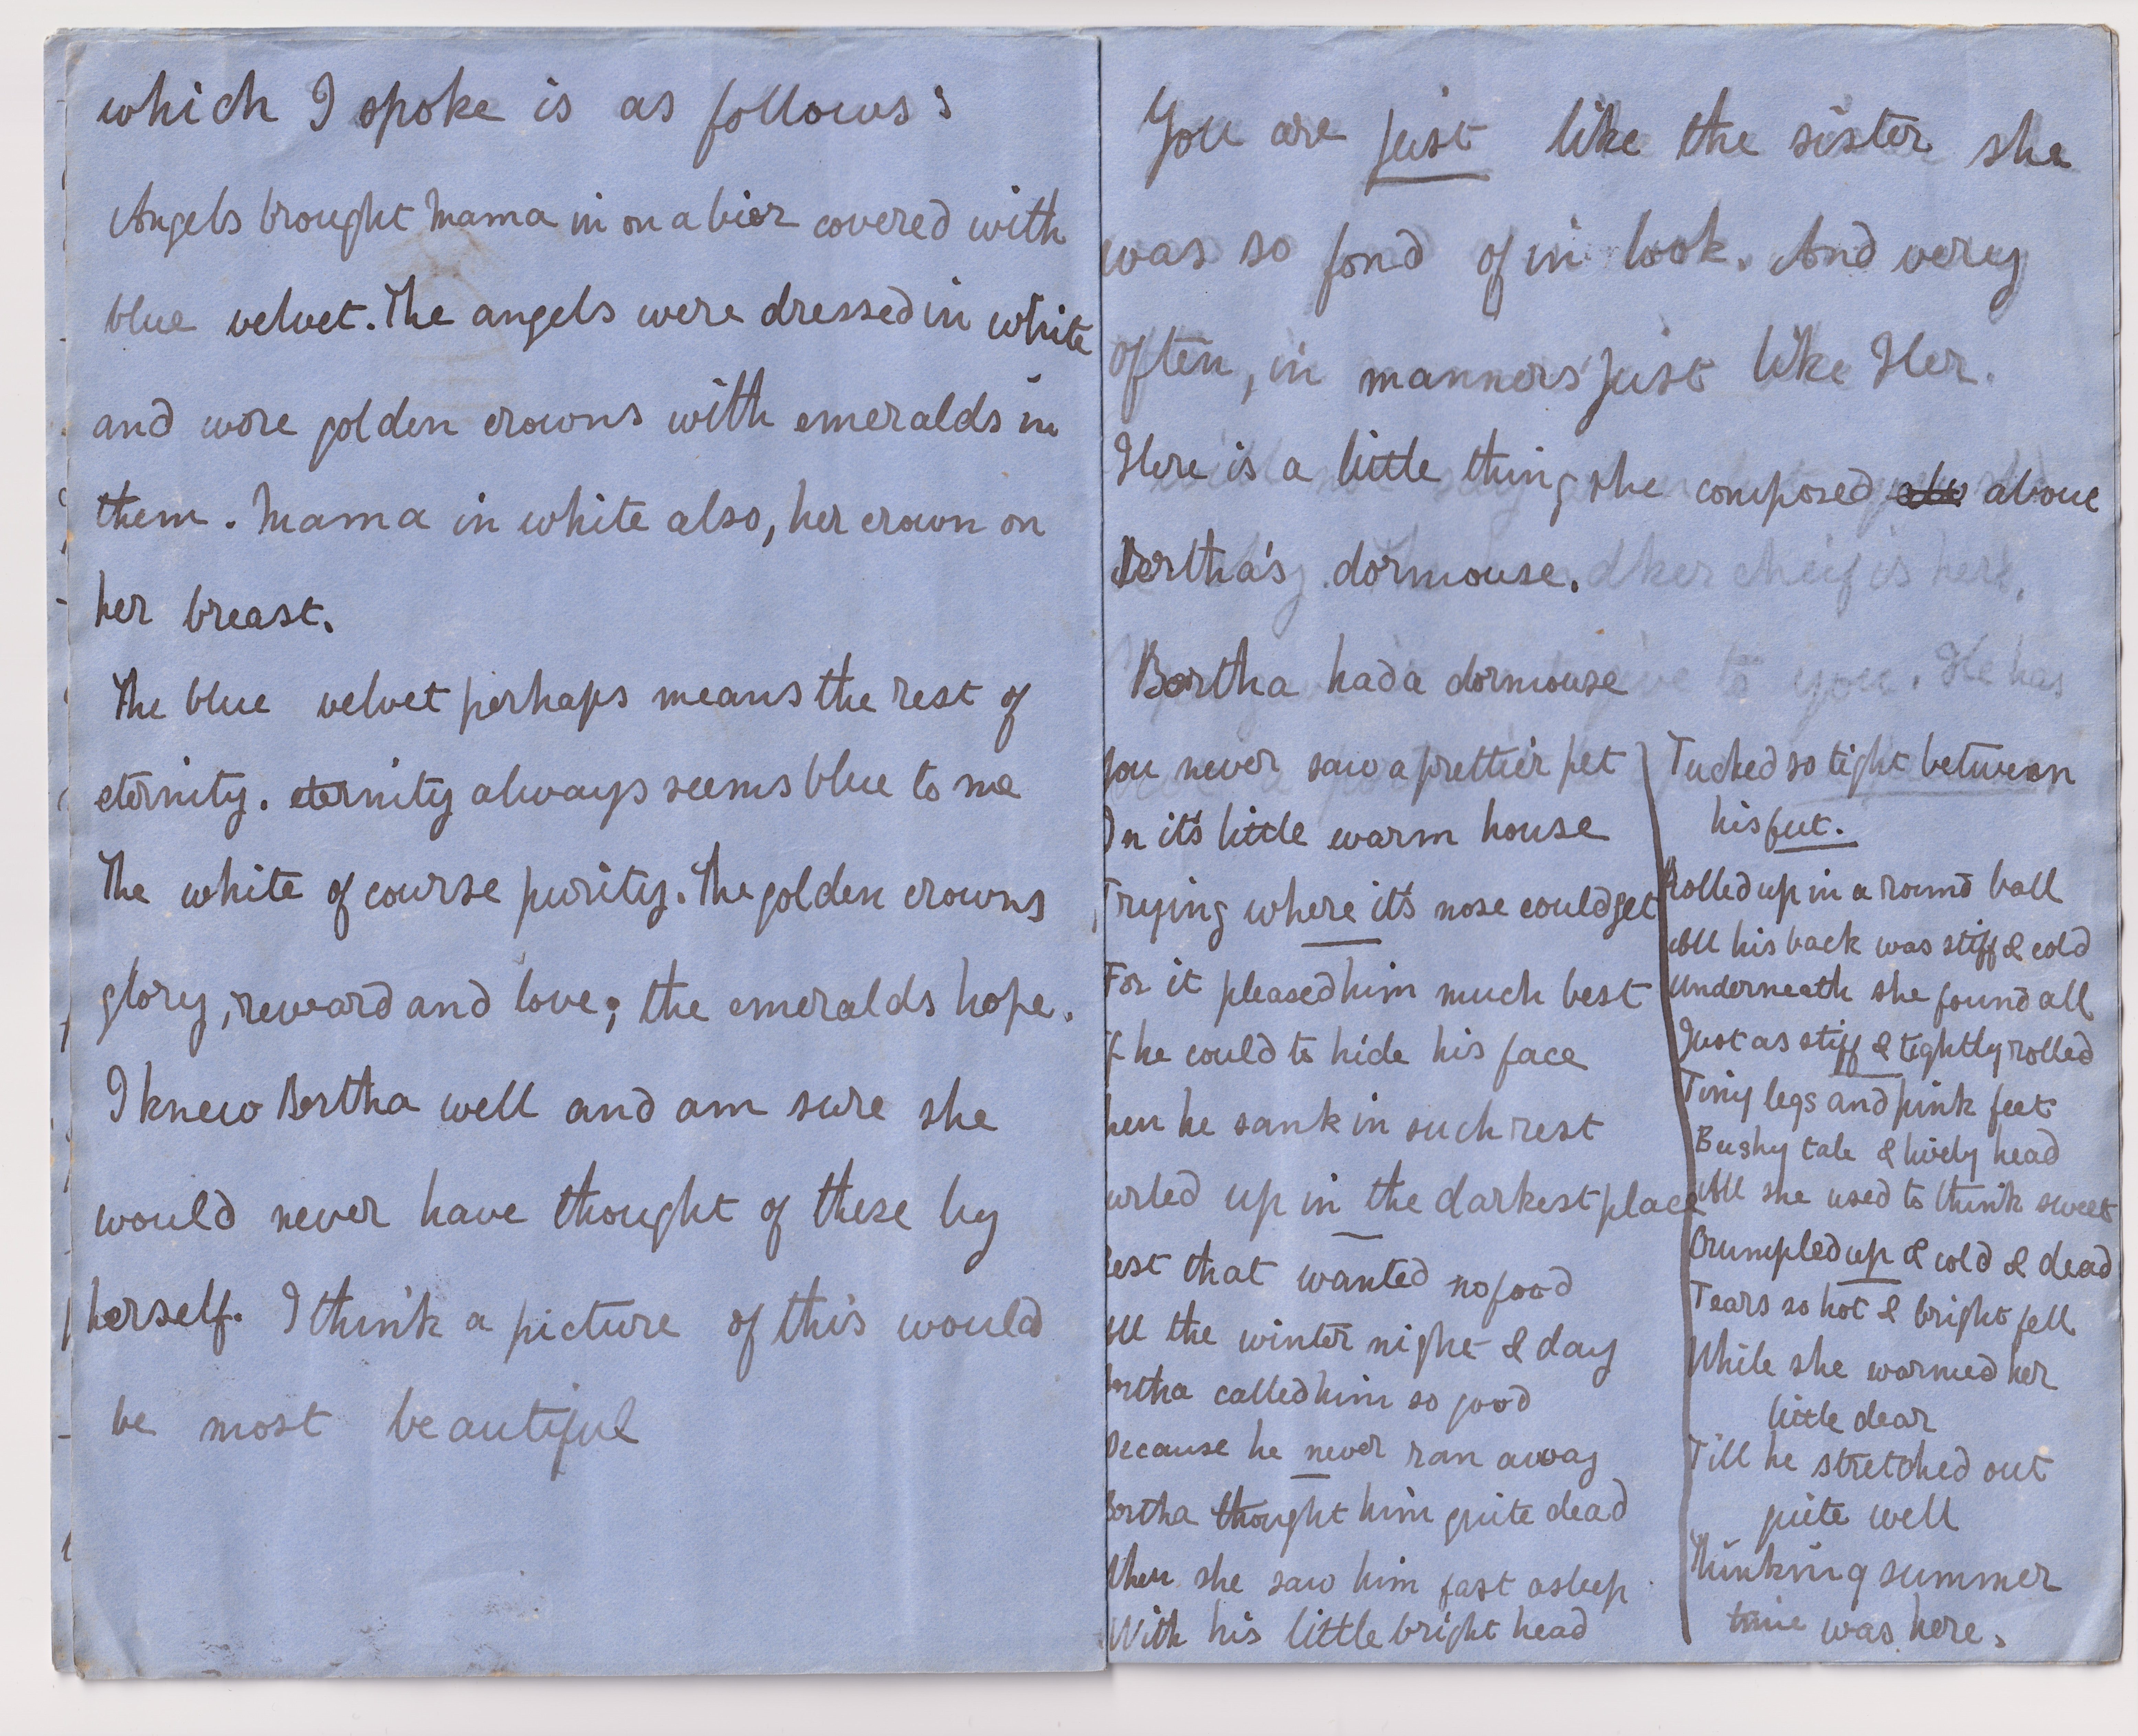 which I spoke is as follows:
Angels brought Mama in on a bier covered with
blue velvet. The angels were dressed in white
and wore golden crowns with emeralds in
them. Mama in white also, her crown on
her breast.
The blue velvet perhaps means the rest of
eternity. eternity always seems blue to me
The white of course purity. The golden crowns
glory, reward and love; the emeralds hope.
I knew Bertha well and am sure she
would never have thought of these by
herself. I think a picture of this would
be most beautiful
You are just like the sister she
was so fond of in look. And very
often, in manners just like Her.
Here is a little thing she composed about
Bertha's dormouse.
Bertha had a dormouse
You never saw a prettier pet
In it's little warm house
Trying where it's nose could get
For it pleased him much best
If he could to hide his face
hen he sank in such rest
urled up in the darkest place
Rest that wanted no food
All the winter night & day
ertha called him so good
Because he never ran away
Bertha thought him quite dead
When she saw him fast asleep
With his little bright head
Tucked so tight between
his feet.
Rolled up in a round ball
All his back was stiff & cold
Underneath she found all
Just as stiff & tightly rolled
Tiny legs and pink feet
Bushy tale & lively head
All she used to think sweet
Crumpled up & cold & dead
Tears so hot & bright fell
While she warmed her
little dear
Till he stretched out
quite well
Thinking summer
time was here.